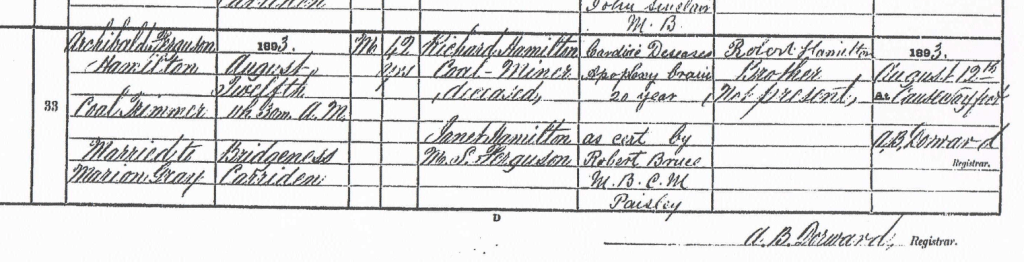 John Sinclair
M. B.
33
Archibald Ferguson
Hamilton
Coal Trimmer
Married to
Marion Gray
1893.
August
Twelfth
1h 3am A.M.
Bridgeness
Carriden
M.
42
yrs
Richard Hamilton
Coal-Miner
(deceased)
Janet Hamilton
M. S. Ferguson
Cardiac Disease
Apoplexy brain
20 year
as cert by
Robert Bruce
M.B.C.M
Paisley
Robert Hamilton
Brother
(Not present)
1893.
August 12th
At Causewayfoot
A.B. Dorward
Registrar.
D
A. B. Dorward, Registrar.